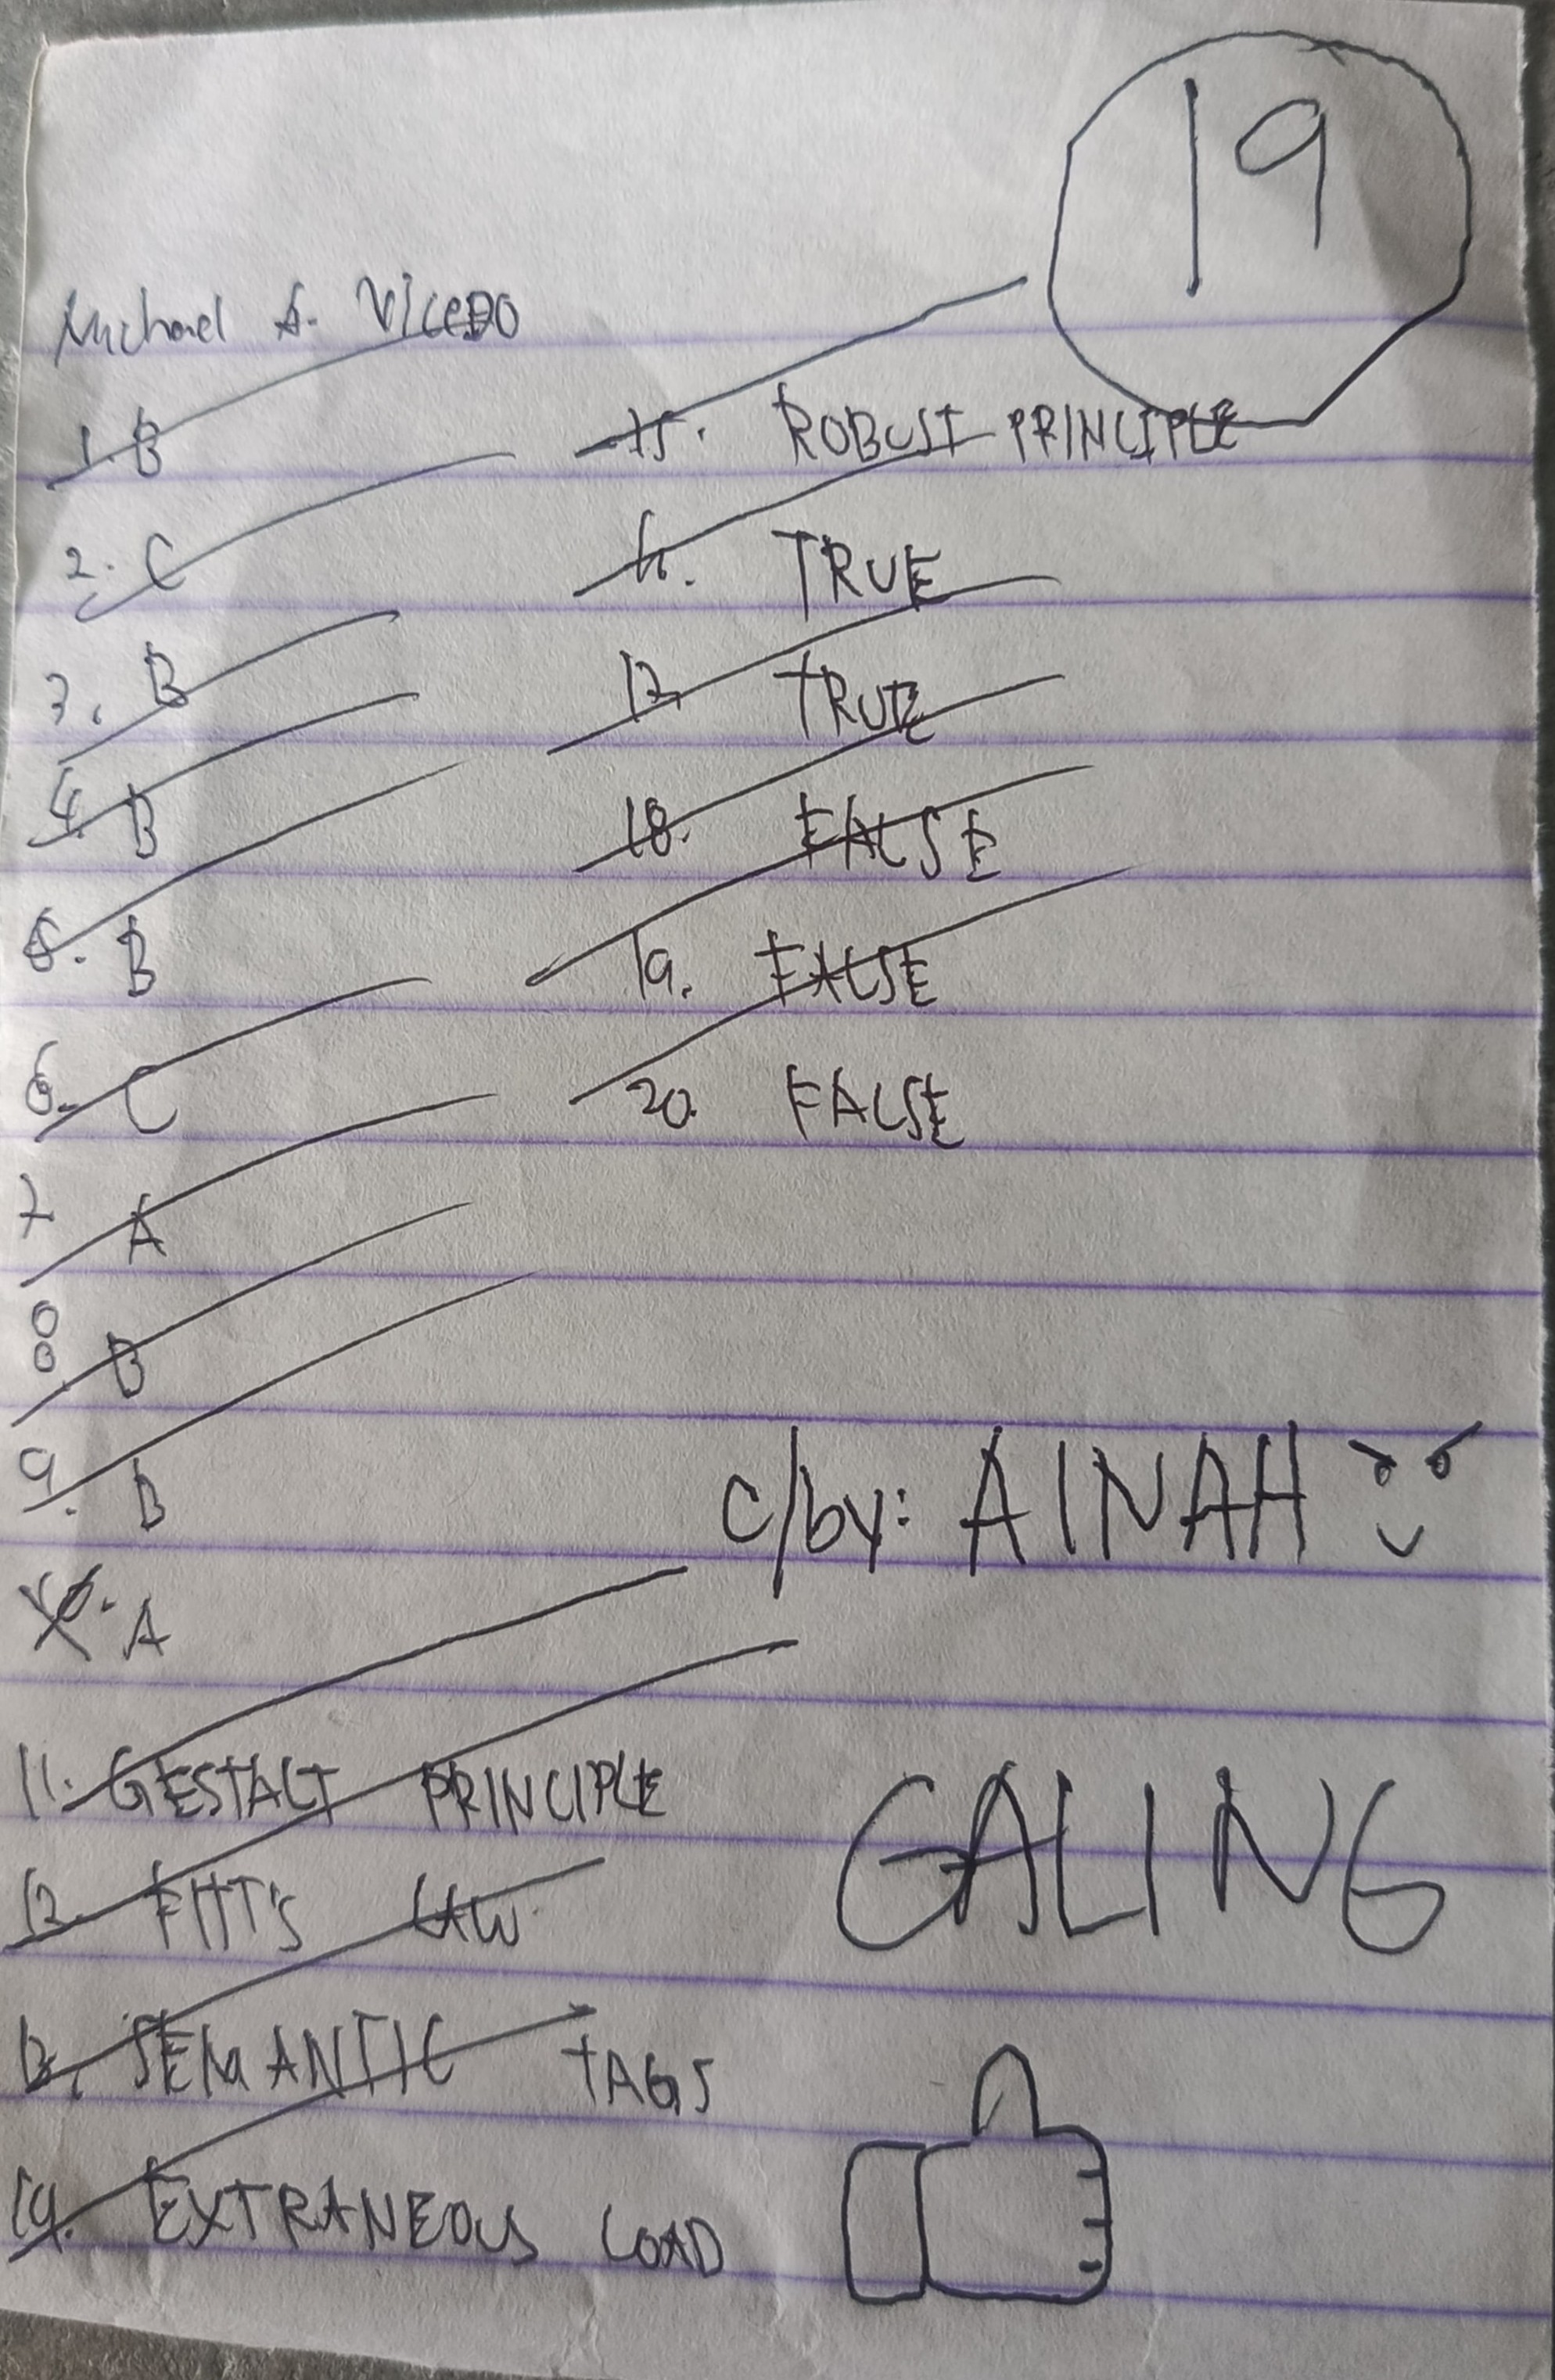 19
Michael A. VICEDO
1. B
2. C
3. B
4. B
5. B
6. C
7 A
8. B
9. B
10. A
11. GESTALT PRINCIPLE
12. FITT'S LAW
13. SEMANTIC TAGS
14. EXTRANEOUS LOAD
15. ROBUST PRINCIPLE
16. TRUE
17. TRUE
18. FALSE
19. FALSE
20. FALSE
c/by: AINAH
GALING